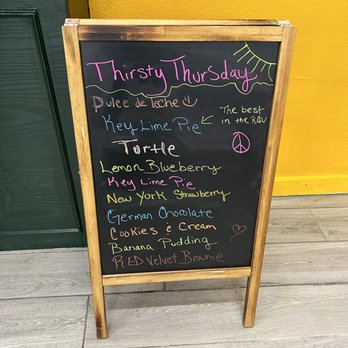 Thirsty Thursday
Dulce de Leche
Key Lime Pie
The best
in the RGV
Turtle
Lemon Blueberry
Key Lime Pie
New York Strawberry
German Chocolate
Cookies & Cream
Banana Pudding
RED Velvet Brownie